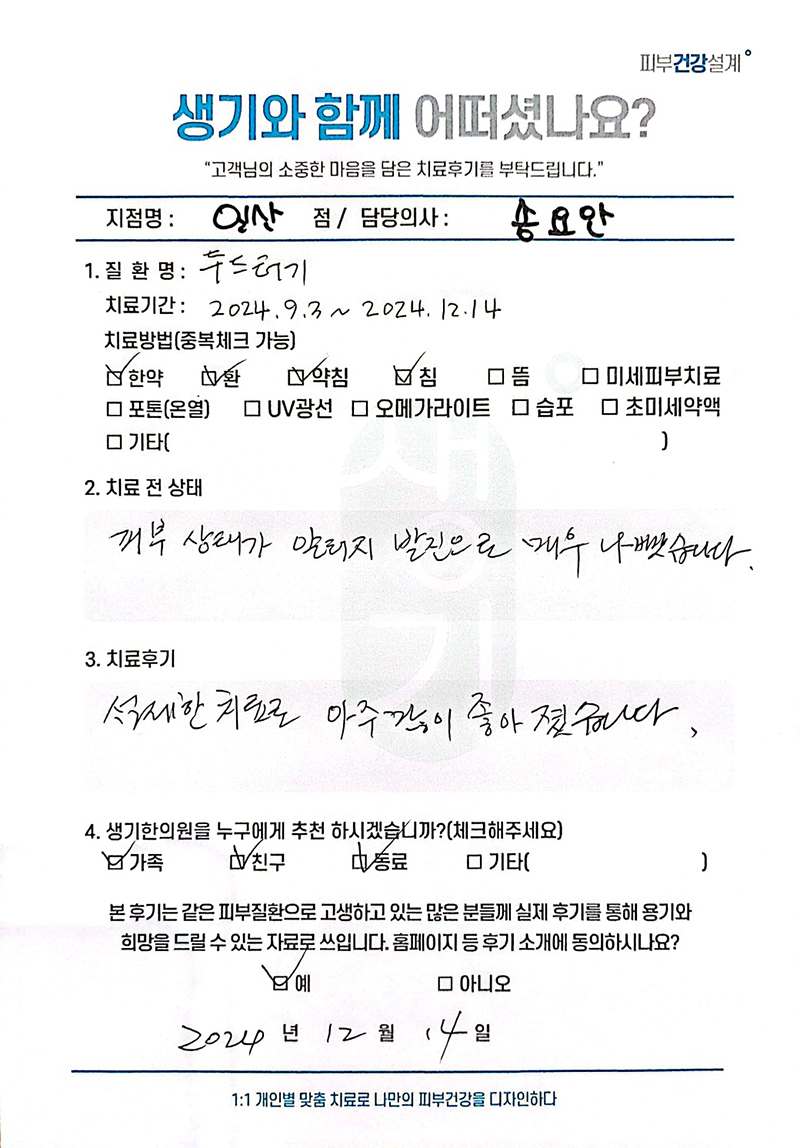 피부건강설계
생기와 함께 어떠셨나요?
"고객님의 소중한 마음을 담은 치료후기를 부탁드립니다."
지점명 : 일산 점 / 담당의사 : 송요안
1. 질 환 명 : 두드러기
치료기간 : 2024.9.3 ~ 2024.12.14
치료방법(중복체크 가능)
☑ 한약 ☑ 환 ☑ 약침 ☑ 침 □ 뜸 □ 미세피부치료
□ 포톤(온열) □ UV광선 □ 오메가라이트 □ 습포 □ 초미세약액
□ 기타( )
2. 치료 전 상태
피부 상태가 알러지 발진으로 매우 나빴습니다.
3. 치료후기
치료로 아주 많이 좋아 졌습니다,
4. 생기한의원을 누구에게 추천 하시겠습니까?(체크해주세요)
☑ 가족 ☑ 친구 ☑ 동료 □ 기타( )
본 후기는 같은 피부질환으로 고생하고 있는 많은 분들께 실제 후기를 통해 용기와
희망을 드릴 수 있는 자료로 쓰입니다. 홈페이지 등 후기 소개에 동의하시나요?
☑ 예 □ 아니오
2024 년 12 월 14 일
1:1 개인별 맞춤 치료로 나만의 피부건강을 디자인하다
생기